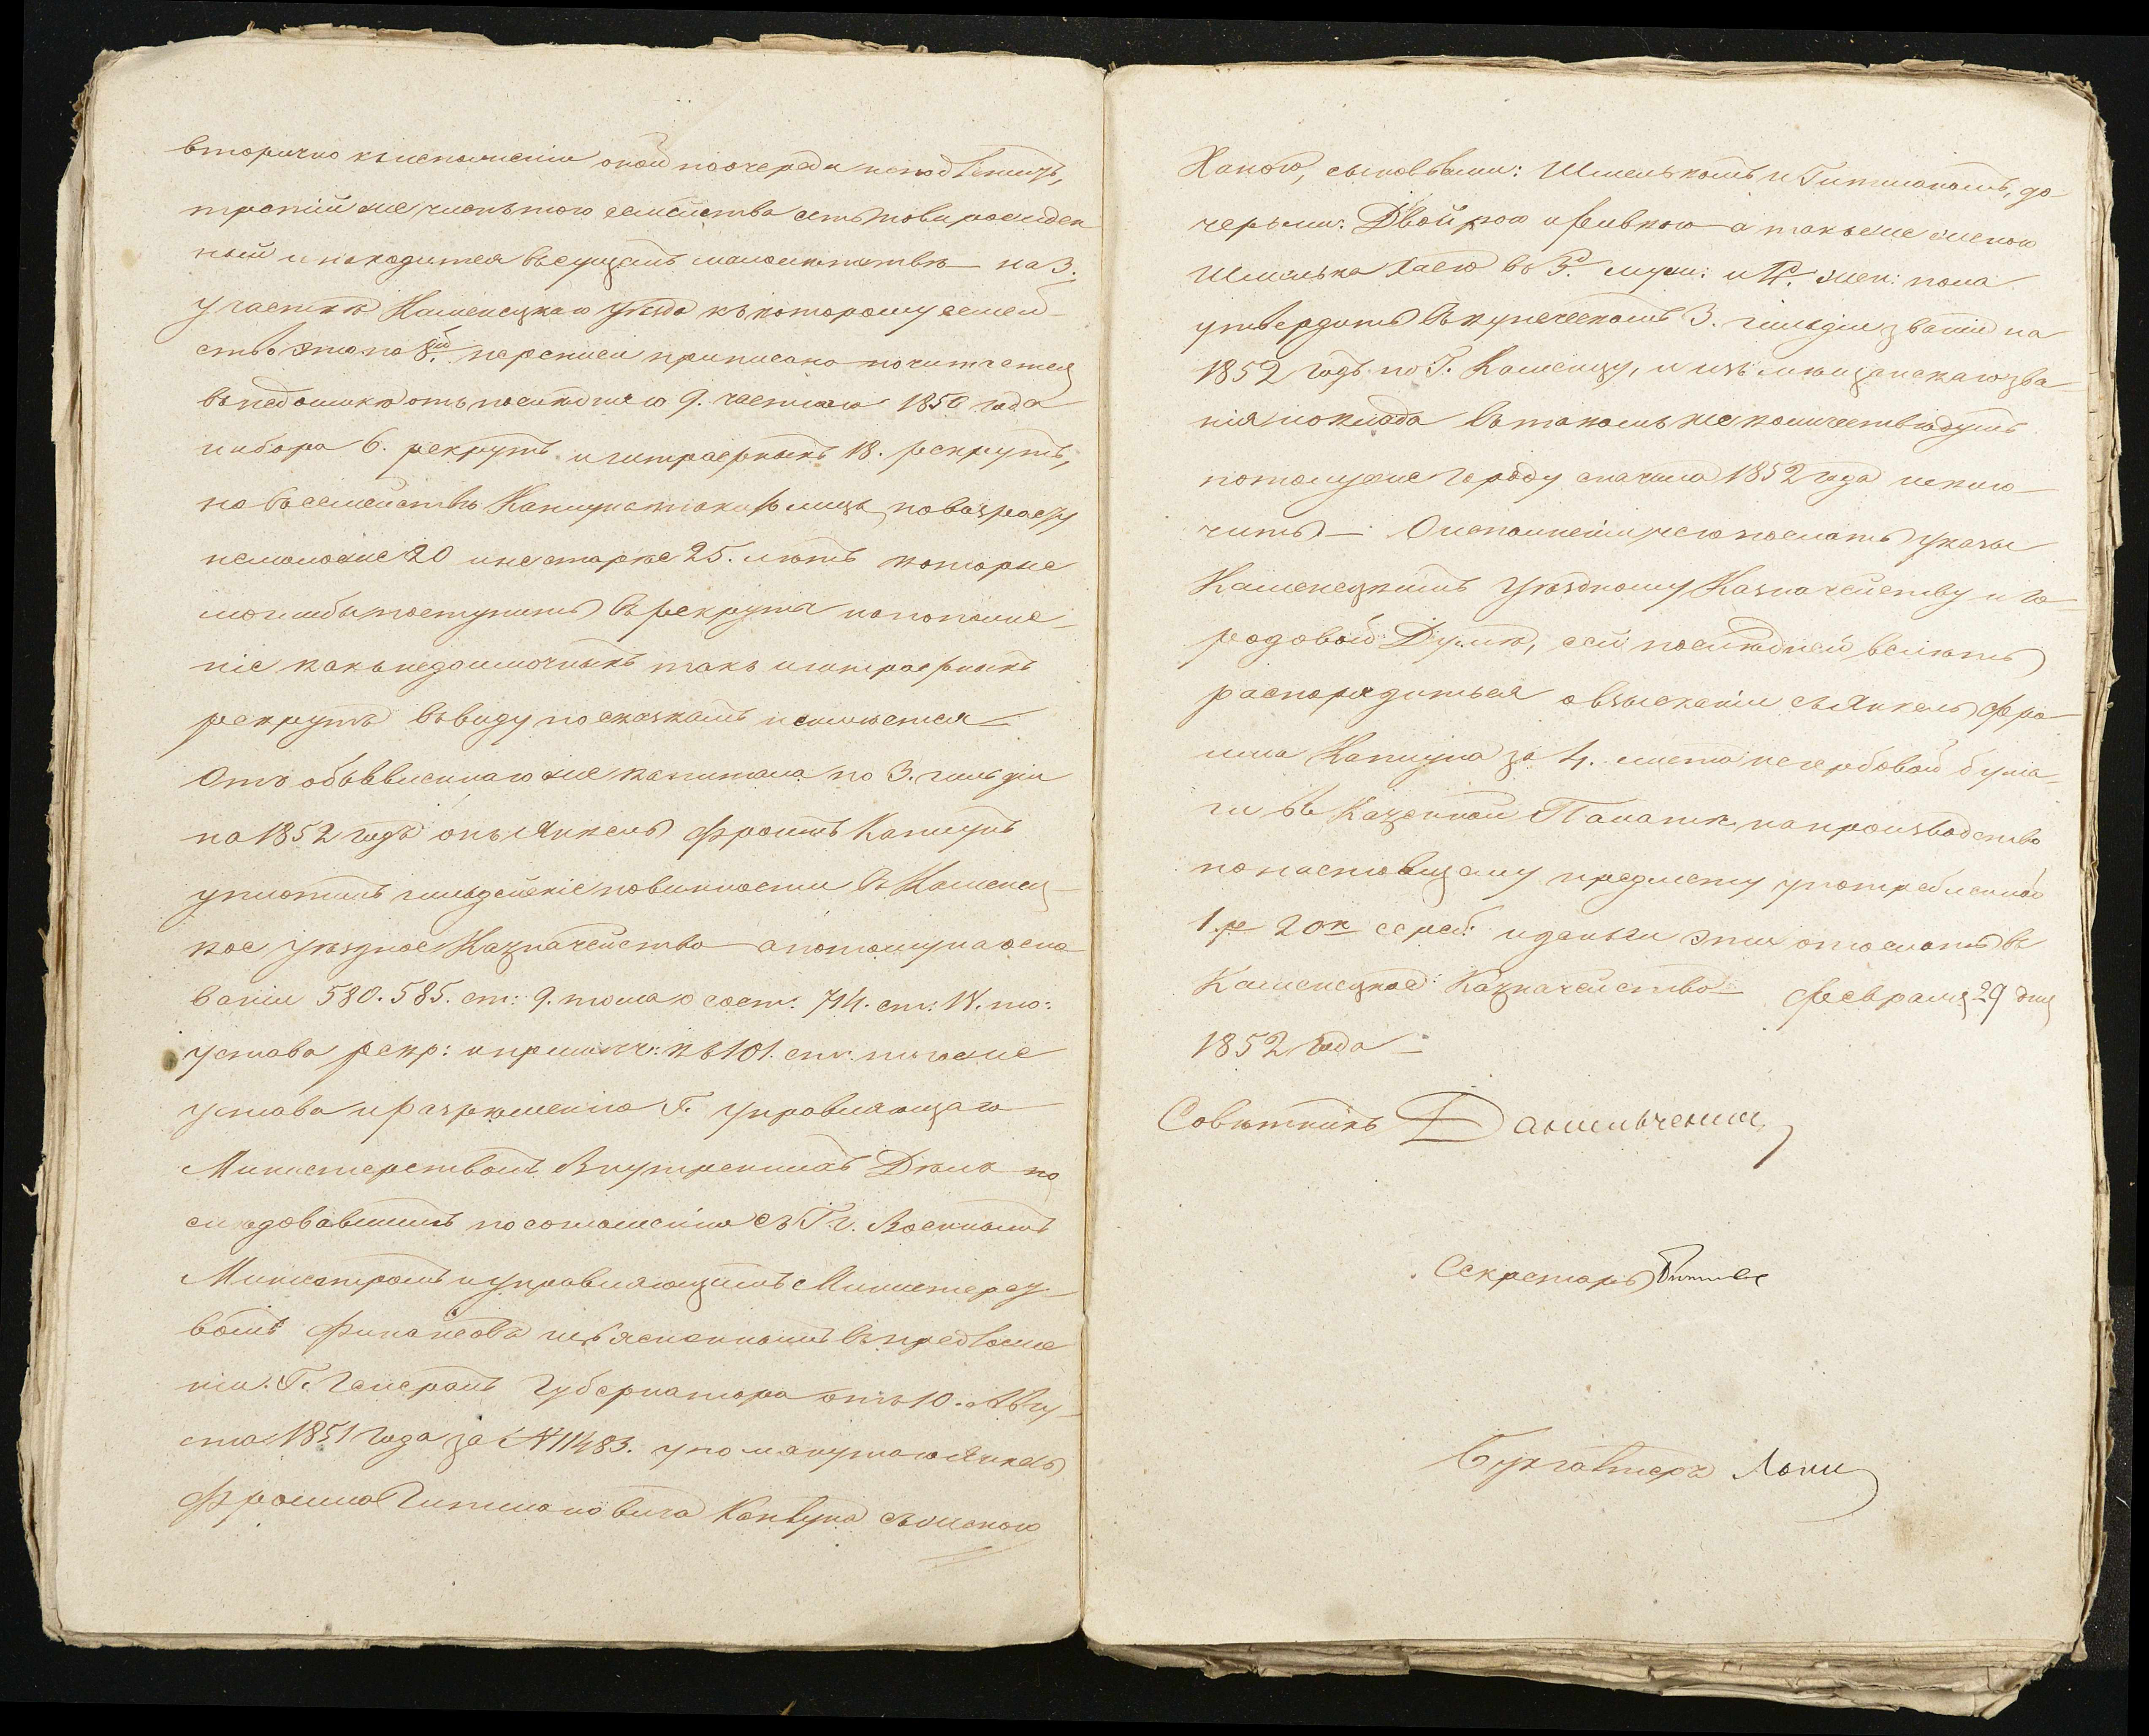 вторично къ исполненію оной по очереди неподлежитъ,
третій же членъ того семейства есть новорожден
ный и находится въ сущемъ малолѣтствѣ на 3.
участкѣ Каменецкаго уѣзда къ которому семей-
ство это по 8й переписи приписано почитается
въ недоимкѣ отъ послѣдняго 9. частнаго 1850 года
набора 6. рекрутъ и штрафныхъ 18. рекрутъ,
но въ семействѣ Капцуна такихъ лицъ, по возрасту
немоложе 20 и не старѣе 25. лѣтъ которые
моглибы поступить въ рекруты на пополне-
ніе какъ недоимочныхъ такъ и штрафныхъ
рекрутъ въ виду по сказкамъ неимѣется
Отъ объявленнаго же капитала по 3. гильдіи
на 1852 годъ онъ Янкель Фроимъ Капцунъ
уплатилъ гильдейскіе повинности въ Каменец-
кое уѣздное Казначейство а потому на осно
ваніи 580. 585. ст: 9. тома о сост: 714. ст: IV. то:
устава рекр: и примѣч: къ 101. ст: того же
устава и разрѣшенію Г. управляющаго
Министерствомъ Внутреннихъ Дѣлъ по
слѣдовавшимъ по соглашенію съ Г.г. Военнымъ
Министромъ и управляющимъ Министерст-
вомъ Финансовъ изъясненнымъ въ предложе
ніи Г. Генералъ Губернатора отъ 10. Авгу-
ста 1851 года за № 11483. упомянутаго Янкель
Фроима Гитмановича Капцуна съ женою
Ханою, сыновьями: Шмелькомъ и Гитманомъ, до
черьми: Двойрою и Ривкою а также женою
Шмелька Хаею въ 3. муж: и 4. жен: пола
утвердить въ купеческомъ 3. гильдіи званіи на
1852 годъ по Г. Каменцу, и изъ мѣщанскаго зва
нія и оклада въ такомъ же количествѣ душъ
по томуже городу сначала 1852 года исклю-
чить – О исполненіи чего послать указы
Каменецкимъ Уѣздному Казначейству и Го-
родовой Думѣ, сей послѣдней велѣть
распорядиться о взысканіи съ Янкель Фро-
има Капцуна за 4. листа негербовой бума-
ги въ Казенной Палатѣ на производство
по настоящему предмету употребленной
1 р 20 к сереб: и деньги эти отослать въ
Каменецкое Казначейство Февраля 29 дня
1852 года –
Совѣтникъ Данильченко
Секретарь
Бухгалтеръ